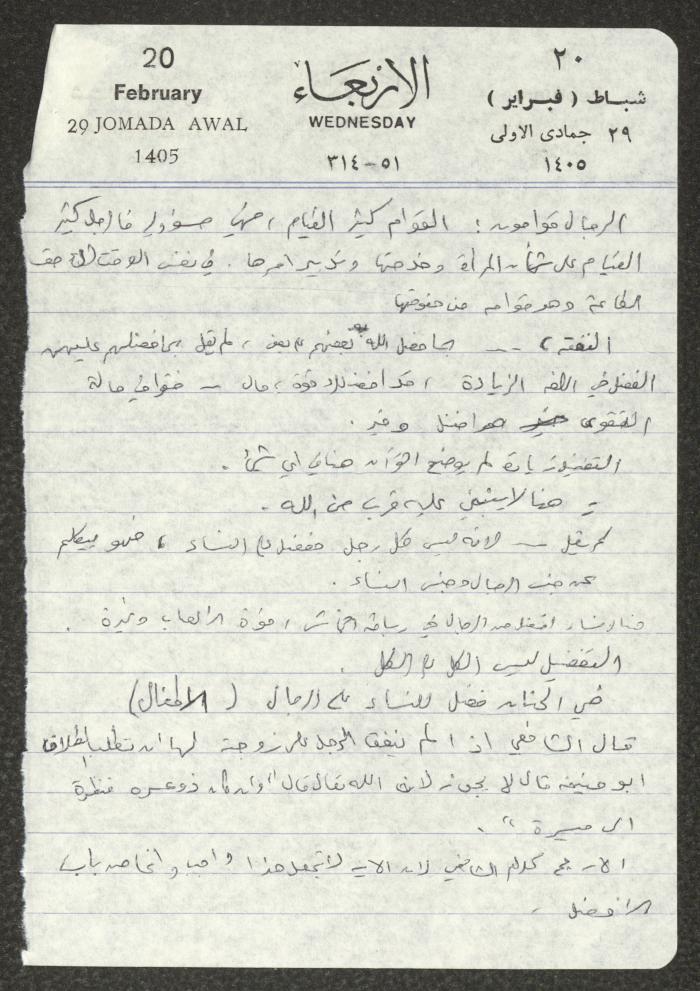 20
February
29 JOMADA AWAL
1405
الأربعاء
WEDNESDAY
٣١٤-٥١
٢٠
شباط ( فبراير )
٢٩ جمادى الاولى
١٤٠٥
الرجال قوامون : القوام كثير القيام ، مسؤول فالرجل كثير
القيام على شأن المرأة وخدمتها وتدبير امرها . في نفس الوقت حق
الطاعة وهو قوامه من حقوقها
النفقة - بما فضل الله بعضهم على بعض ، لم يقل بما فضلهم عليهن
الفضل في اللغه الزيادة ، قد افضله قوة ، مال - ففي حالة
التقوى هو افضل وخير .
التفضيل زيادة لم يوضح القرآن هنا في أي شئ .
هنا لا ينبني عليه قرب من الله .
لم يقل - لانه ليس كل رجل مفضل على النساء ، فهو يتكلم
عن جنس الرجال وجنس النساء .
فنساء افضل من الرجال في ، قوة الالعاب وغيرة .
التفضيل ليس الكل على الكل .
في الحنان فضل للنساء على الرجال ( الاطفال )
قال الشافعي اذا لم ينفق الرجل على زوجته لها ان تطلب الطلاق
ابو حنيفه قال لا يجوز لان الله تعالى قال " وان كان ذو عسره فنظرة
الى ميسرة " .
الارجح كلام الشافعي لان الايه لا تجعل هذا واجب وانما من باب
الافضل .